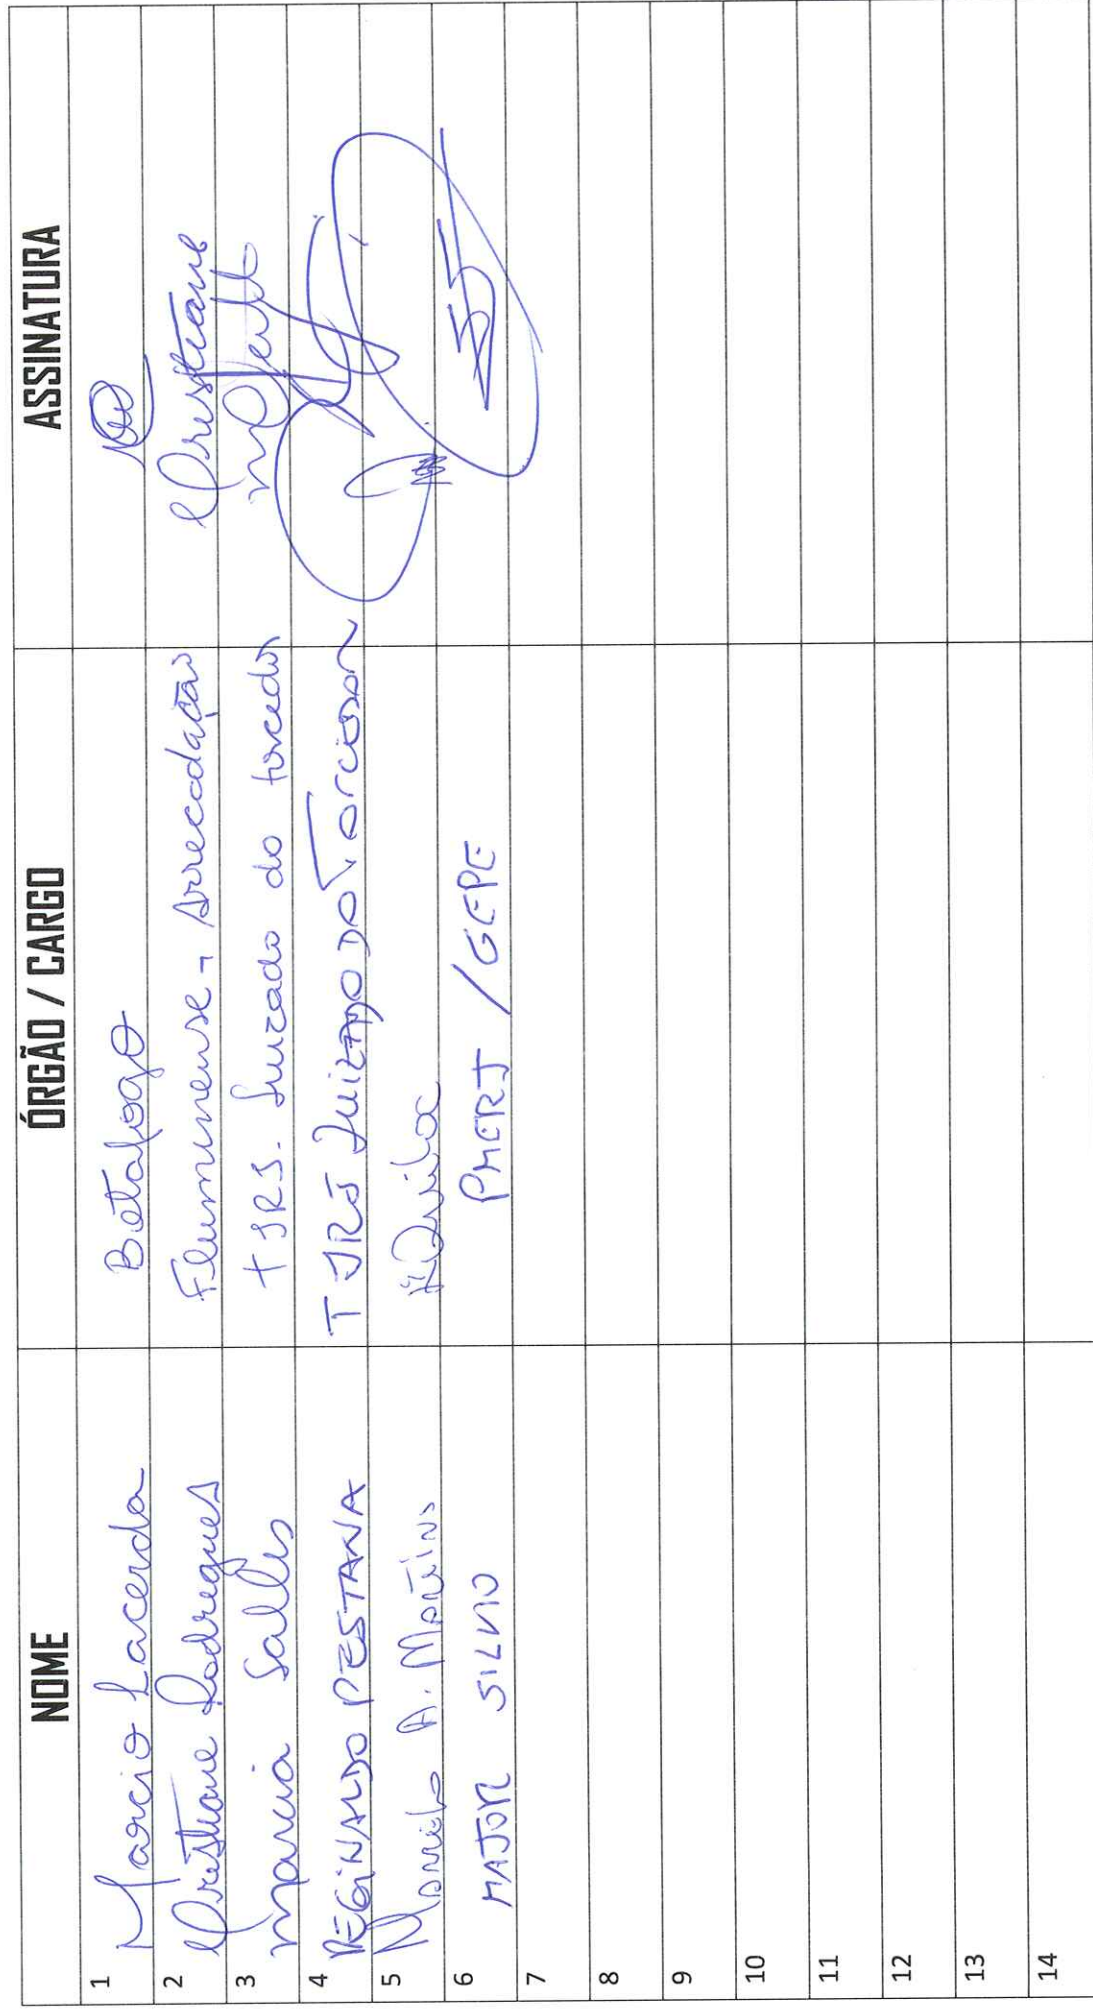 NOME ÓRGÃO / CARGO ASSINATURA
1 Marcio Lacerda Botafogo
2 Cristiane Rodrigues Fluminense - Arrecadação Cristiane
3 Marcia Salles TJRJ. Juizado do torcedor
4 REGINALDO PESTANA TJRJ Juizado do Torcedor
5 A. Martins
6 MAJOR SILVIO PMERJ / GEPE
7
8
9
10
11
12
13
14